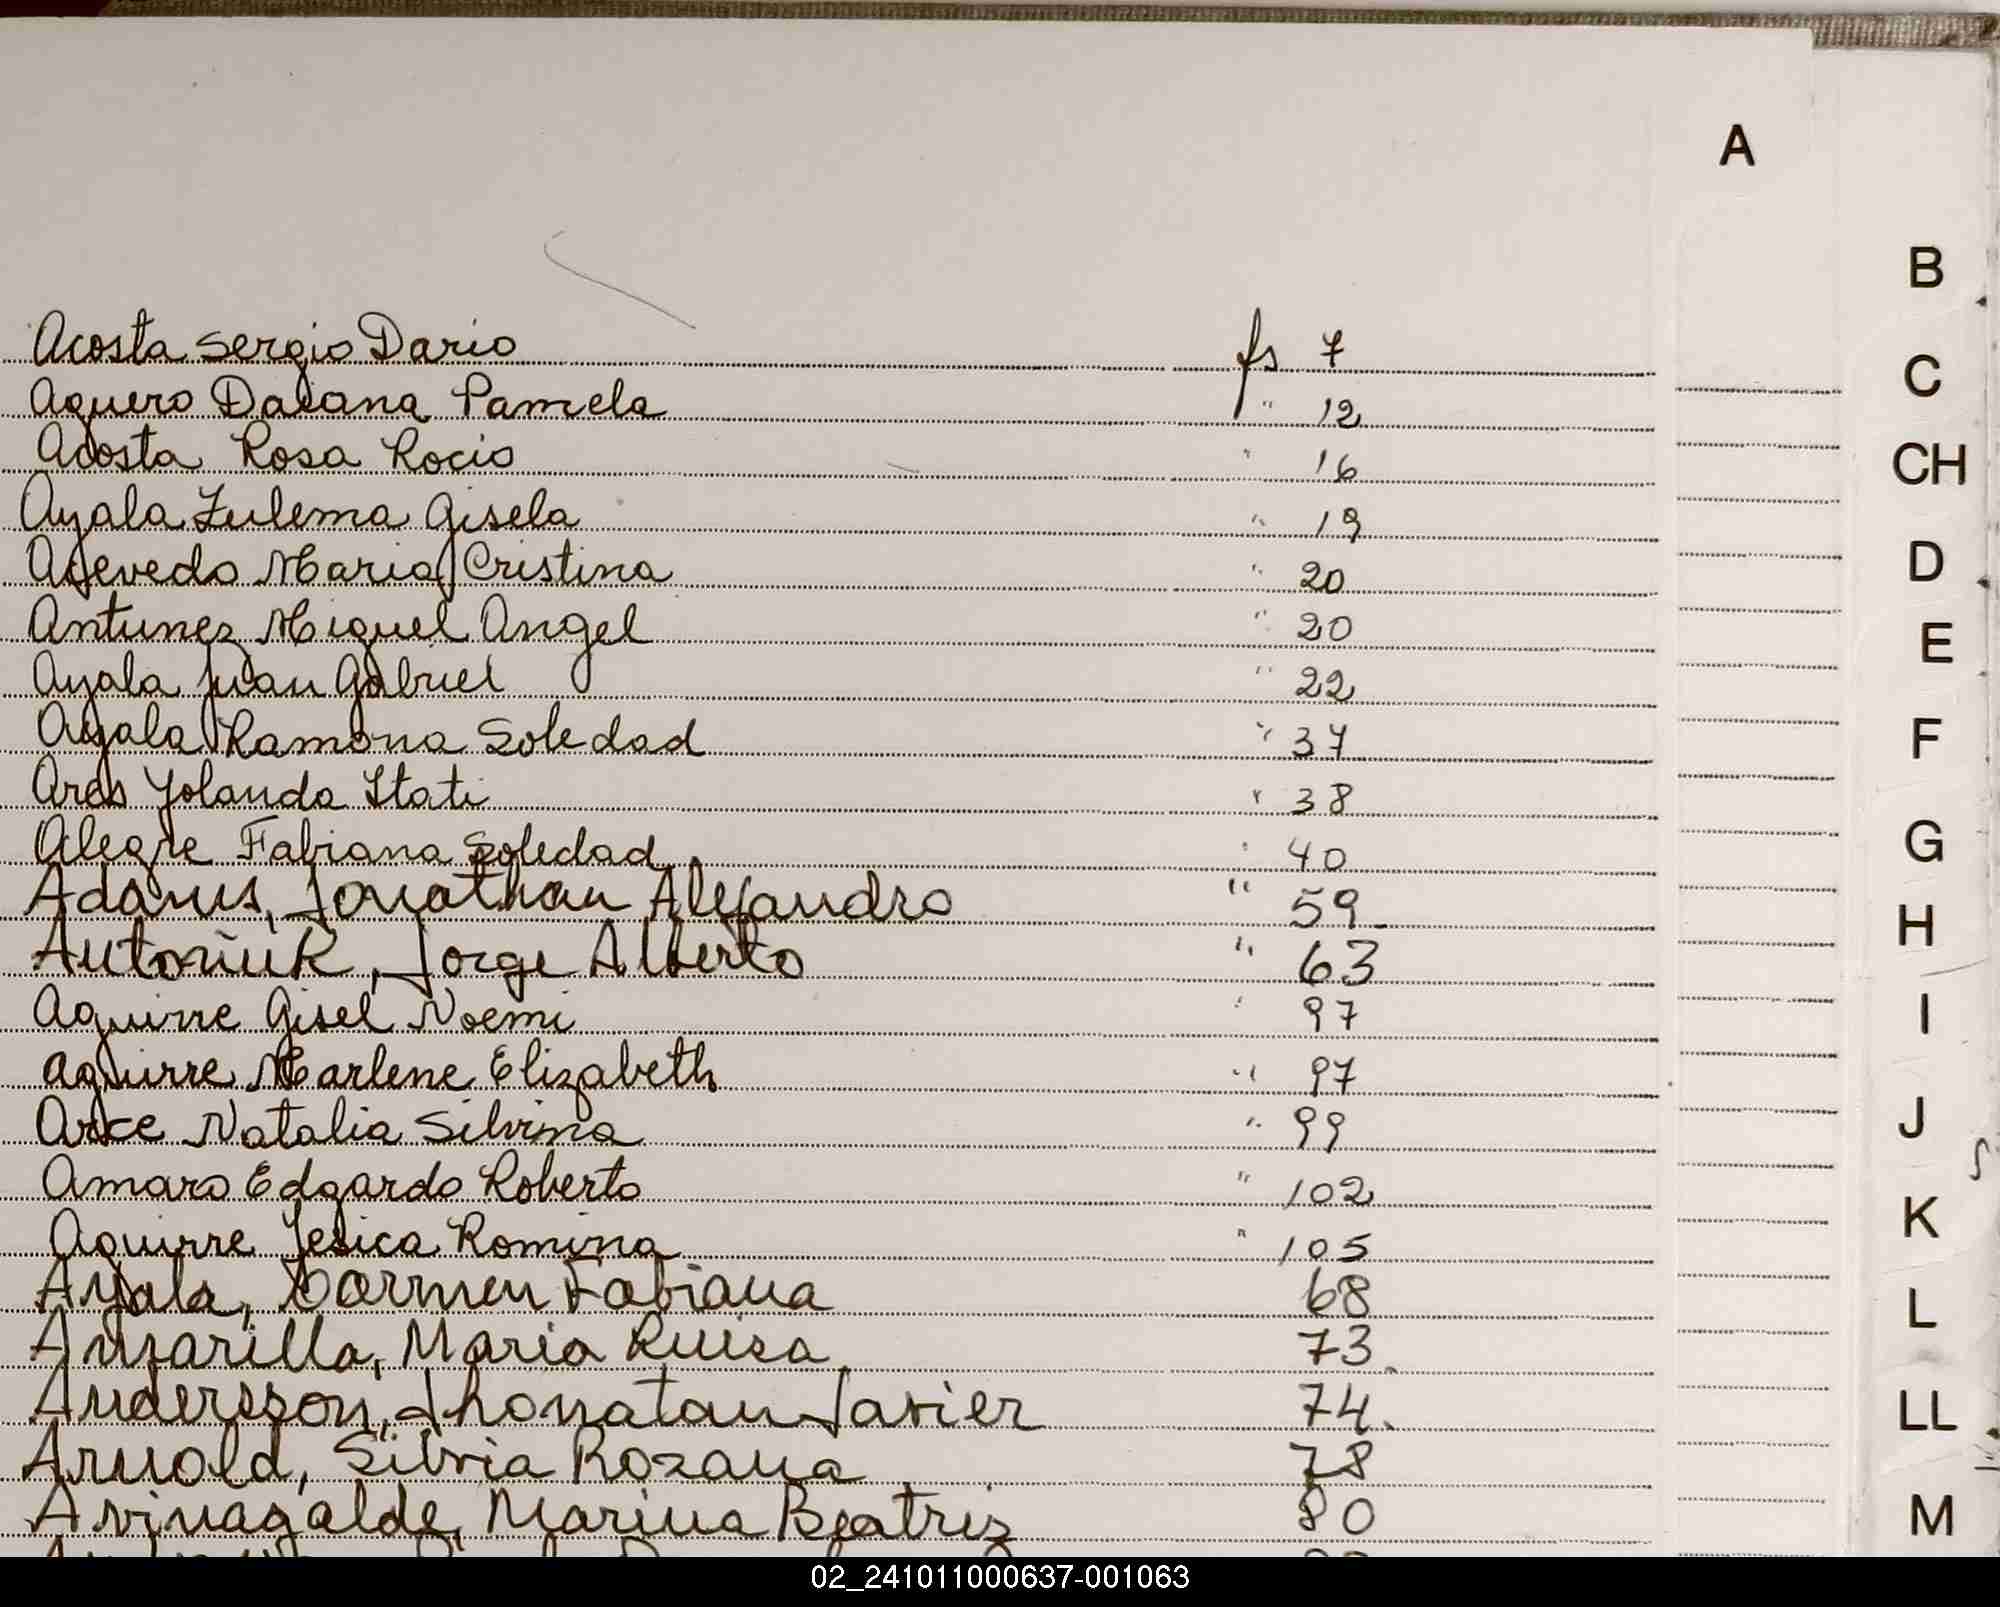 A
B
C
CH
D
E
F
G
H
I
J
K
L
LL
M
Acosta Sergio Dario fs 7
Aguero Daiana Pamela " 12
Acosta Rosa Rocio " 16
Ayala Zulema Gisela " 19
Acevedo Maria Cristina " 20
Antunez Miguel Angel " 20
Ayala Juan Gabriel " 22
Ayala Ramona Soledad " 37
Arce Yolanda Itati " 38
Alegre Fabiana Soledad " 40
Adams, Jonathan Alejandro " 59
Antoniuk, Jorge Alberto " 63
Aguirre Gisel Noemi " 97
Aguirre Marlene Elizabeth " 97
Arce Natalia Silvina " 99
Amaro Edgardo Roberto " 102
Aguirre Jesica Romina " 105
Ayala, Carmen Fabiana 68
Maria Luisa 73
Andersson, Jhonatan Javier 74
Arnold, Silvia Rozana 78
Marina Beatriz 80
02_241011000637-001063